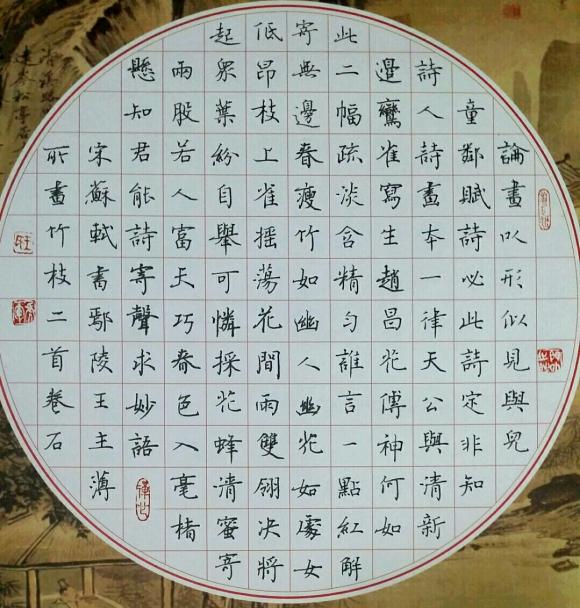 論畫以形似見與兒
童鄰賦詩必此詩定非知
詩人詩畫本一律天公與清新
邉鸞雀寫生趙昌花傳神何如
此二幅疏淡含精勻誰言一點紅解
寄無邊春瘦竹如幽人幽花如處女
低昂枝上雀摇蕩花間雨雙翎决將
起衆葉紛自舉可憐採花蜂清蜜寄
兩股若人富天巧春色入毫楮
懸知君能詩寄聲求妙語
宋蘇軾書鄢陵王主薄
所畫竹枝二首卷石